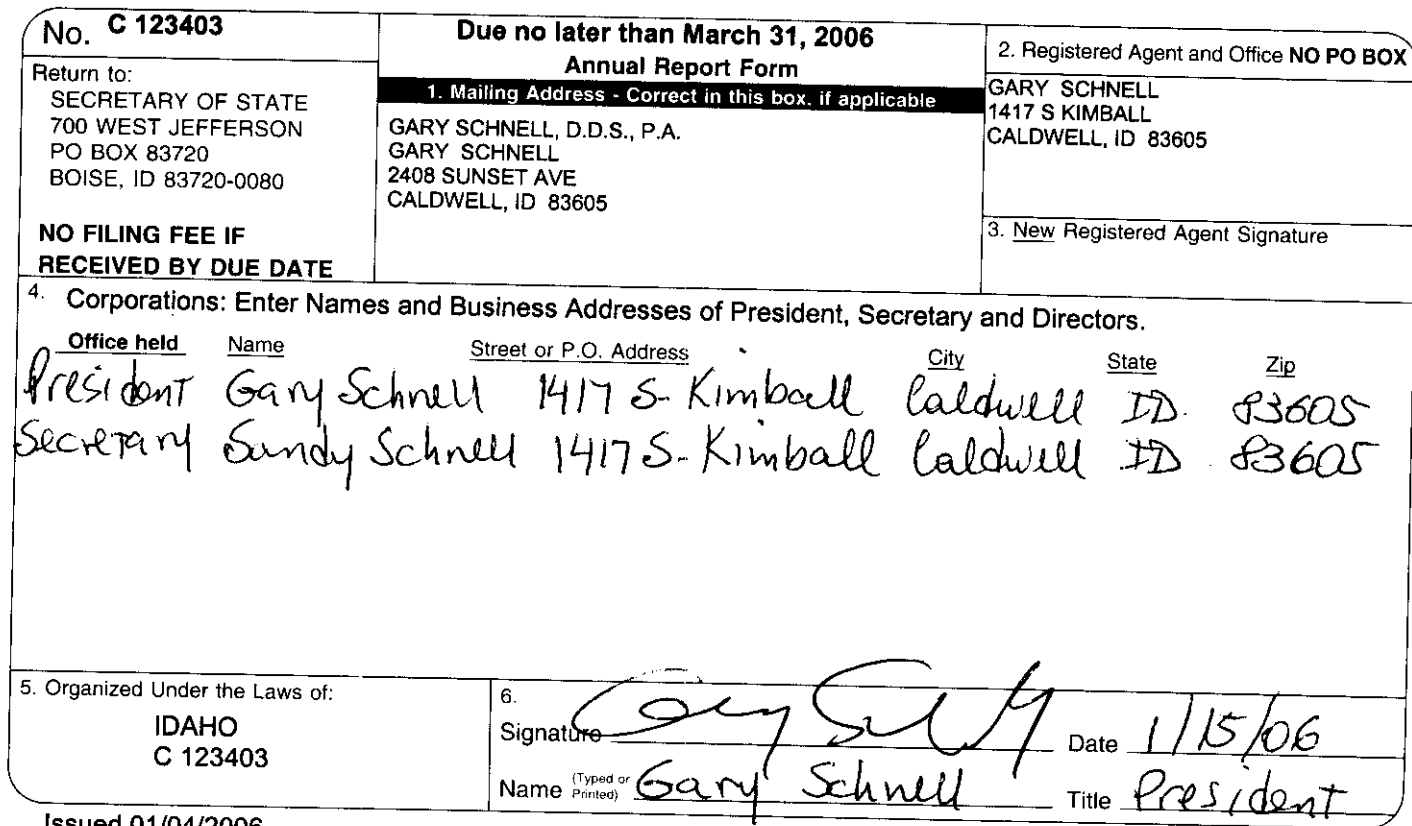 No. C 123403
Return to:
SECRETARY OF STATE
700 WEST JEFFERSON
PO BOX 83720
BOISE, ID 83720-0080
NO FILING FEE IF
RECEIVED BY DUE DATE
Due no later than March 31, 2006
Annual Report Form
1. Mailing Address - Correct in this box, if applicable
GARY SCHNELL, D.D.S., P.A.
GARY SCHNELL
2408 SUNSET AVE
CALDWELL, ID 83605
2. Registered Agent and Office NO PO BOX
GARY SCHNELL
1417 S KIMBALL
CALDWELL, ID 83605
3. New Registered Agent Signature
4. Corporations: Enter Names and Business Addresses of President, Secretary and Directors.
Office held Name Street or P.O. Address City State Zip
President Gary Schnell 1417 S. Kimball Caldwell ID. 83605
Secretary Sandy Schnell 1417 S. Kimball Caldwell ID. 83605
5. Organized Under the Laws of:
IDAHO
C 123403
6.
Signature Date 1/15/06
Name (Typed or Printed) Gary Schnell Title President
Issued 01/04/2006